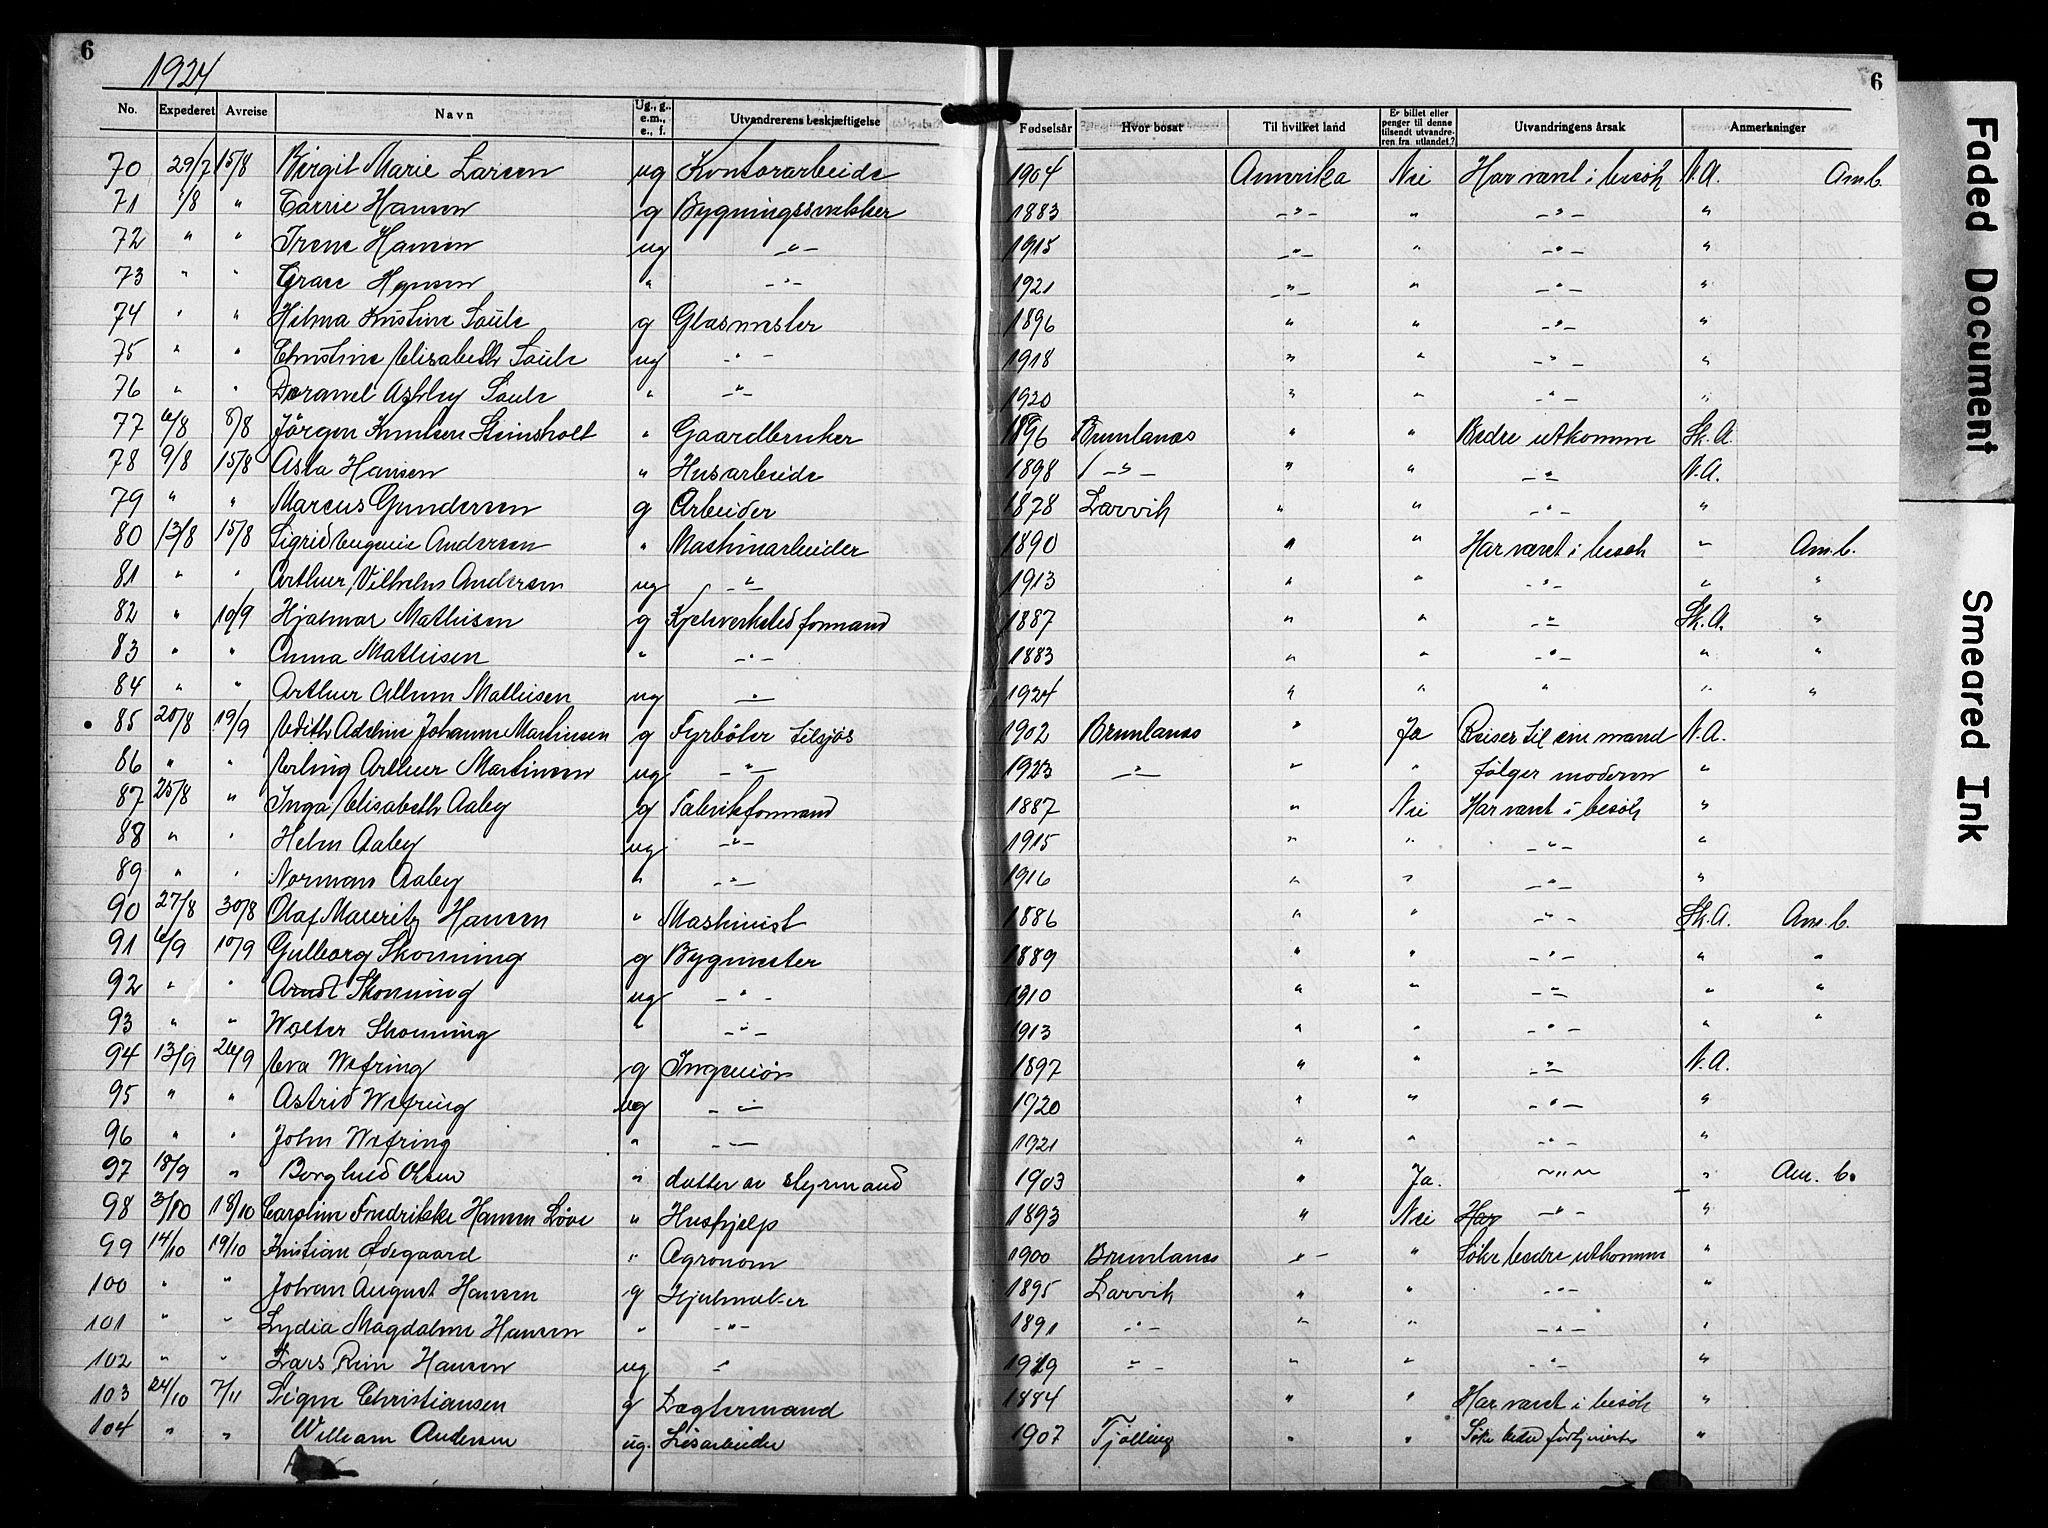 6
1924
No. Expederet Avreise Navn Ug., g., e.m., e., f. Utvandrerens beskjæftigelse Fødselsår Hvor bosat Til hvilket land Er billet eller penger til denne tilsendt utvandreren fra utlandet? Utvandringens årsak Anmerkninger
6
70 29/7 15/8 Birgit Marie Larsen ug Kontorarbeide 1904 Amerika Nei Har været i besök N.A. Am.b.
71 1/8 " Carrie Hansen g Bygningssnekker 1883 -"- " -"- "
72 " " Irene Hansen ug -"- 1915 -"- " -"- "
73 " " Grace Hansen " -"- 1921 -"- " -"- "
74 " " Hilma Kristine Saule g Glasmester 1896 " " -"- "
75 " " Christine Elisabeth Saule ug -"- 1918 " " -"- "
76 " " Saule " -"- 1920 " " -"- "
77 6/8 8/8 Jörgen Knutsen Steinsholt " Gaardbruker 1896 Brunlanes " " Bedre utkomme Sk.A.
78 9/8 15/8 Asta Hansen " Husarbeide 1898 -"- " " -"- N.A.
79 " " Marcus Gundersen g Arbeider 1878 Larvik " " -"- "
80 13/8 15/8 Sigrid Eugenie Andersen " Maskinarbeider 1890 " " Har været i besök " Am.b.
81 " " Arthur Vilhelm Andersen ug -"- 1913 " " -"- " "
82 " 10/9 Hjalmar Mathisen g Kjeleverksted formand 1887 " " -"- Sk.A. "
83 " " Anna Mathisen " -"- 1883 " " -"- " "
84 " " Arthur Mathisen ug -"- 1924 " " " " "
85 20/8 19/9 Edith Adeline Johanne Martinsen g Fyrböter tilsjös 1902 Brunlanes " Ja Reiser til sin mand N.A.
86 " " Erling Arthur Martinsen ug -"- 1923 -"- " " følger moderen "
87 25/8 " Inga Elisabeth Aaby g Fabrikformand 1887 " Nei Har været i besök "
88 " " Helen Aaby ug -"- 1915 " " -"- "
89 " " Norman Aaby " -"- 1916 " " -"- "
90 27/8 30/8 Olaf Mauritz Hansen " Maskinist 1886 " " -"- Sk.A. Am.b.
91 6/9 10/9 Gulborg Skonning g Bygmester 1889 " " -"- " "
92 " " Arndt Skonning ug -"- 1910 " " -"- " "
93 " " Walter Skonning " -"- 1913 " " -"- " "
94 13/9 26/9 Eva Wefring g Ingeniør 1897 " " -"- N.A.
95 " " Astrid Wefring ug -"- 1920 " " -"- "
96 " " John Wefring " -"- 1921 " " -"- "
97 18/9 " Borghild Olsen " datter av styrmand 1903 " Ja. -"- " Am. b.
98 3/10 18/10 Caroline Fredrikke Hansen Løve " Hushjelp 1893 " Nei Har -"- "
99 14/10 19/10 Kristian Ødegaard " Agronom 1900 Brunlanes -"- " Söke bedre utkomme "
100 " " Johan August Hansen g Hjulmaker 1895 Larvik " " -"- "
101 " " Lydia Magdalene Hansen " -"- 1891 -"- " " -"- "
102 " " Lars Hansen ug " 1919 -"- " " -"- "
103 24/10 7/11 Signe Christiansen g Lægtermand 1884 " " Har været i besök "
104 " " William Andersen ug. Løsarbeider 1907 Tjølling " " Söke bedre fortjeneste "
Faded Document
Smeared Ink